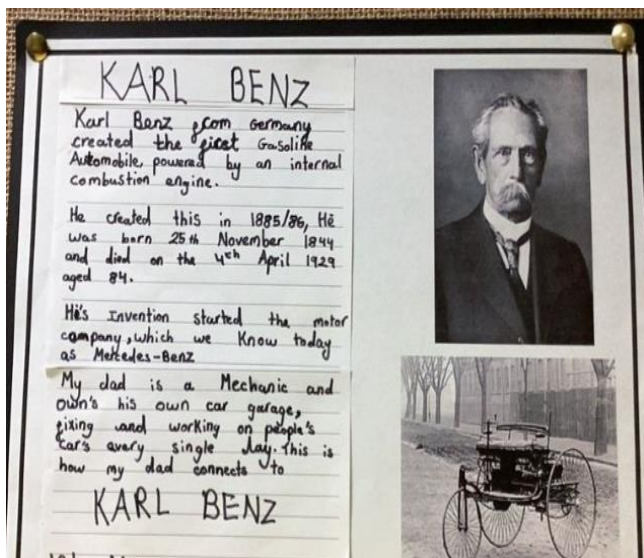 KARL BENZ
Karl Benz, from Germany
created the first Gasoline
Automobile, powered by an internal
combustion engine.
He created this in 1885/86, He
was born 25th November 1844
and died on the 4th April 1929
aged 84.
He's Invention started the motor
company, which we Know today
as Mercedes-Benz
My dad is a Mechanic and
own's his own car garage,
fixing and working on people's
car's every single day. This is
how my dad connects to
KARL BENZ